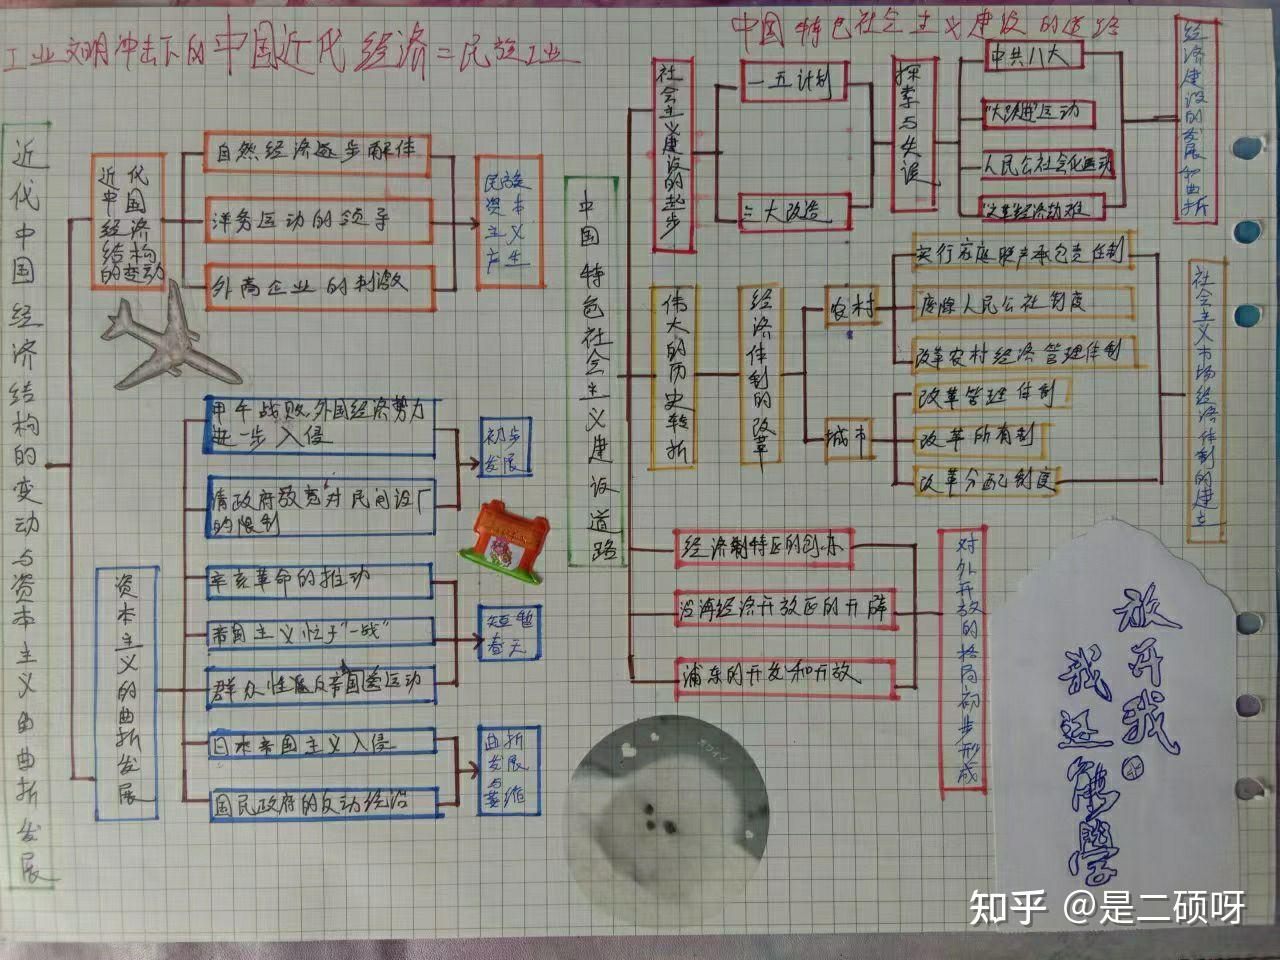 工业文明冲击下的中国近代经济=民族工业
近代中国经济结构的变动与资本主义曲曲折发展
近代
中国
经济
结构
的变动
自然经济逐步解体
洋务运动的领导
外商企业的刺激
民族
资本
主义
产生
资本主义的曲折发展
甲午战败,外国经济势力
进一步入侵
清政府放宽对民间设厂
的限制
初步
发展
辛亥革命的推动
帝国主义忙于"一战"
群众性反帝国爱运动
短暂
春天
日本帝国主义入侵
国民政府的反动经治
曲折
发展
与
萎缩
中国特色社会主义建设的道路
中国特色社会主义建设道路
社会主义建设的起步
一五计划
三大改造
探索与失误
中共八大
"大跃进"运动
人民公社会化运动
"文革"经济劫难
经济建设的发展和曲折
伟大的历史转折
经济体制的改革
农村
实行家庭联产承包责任制
废除人民公社制度
改革农村经济管理体制
城市
改革管理体制
改革所有制
改革分配制度
社会主义市场经济体制的建立
经济特区的创办
沿海经济开放区的开辟
浦东的开发和开放
对外开放的格局初步形成
放开我。
我还能学
知乎 @是二硕呀